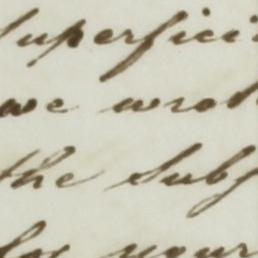 superfici
we wrot
the Subj
by your